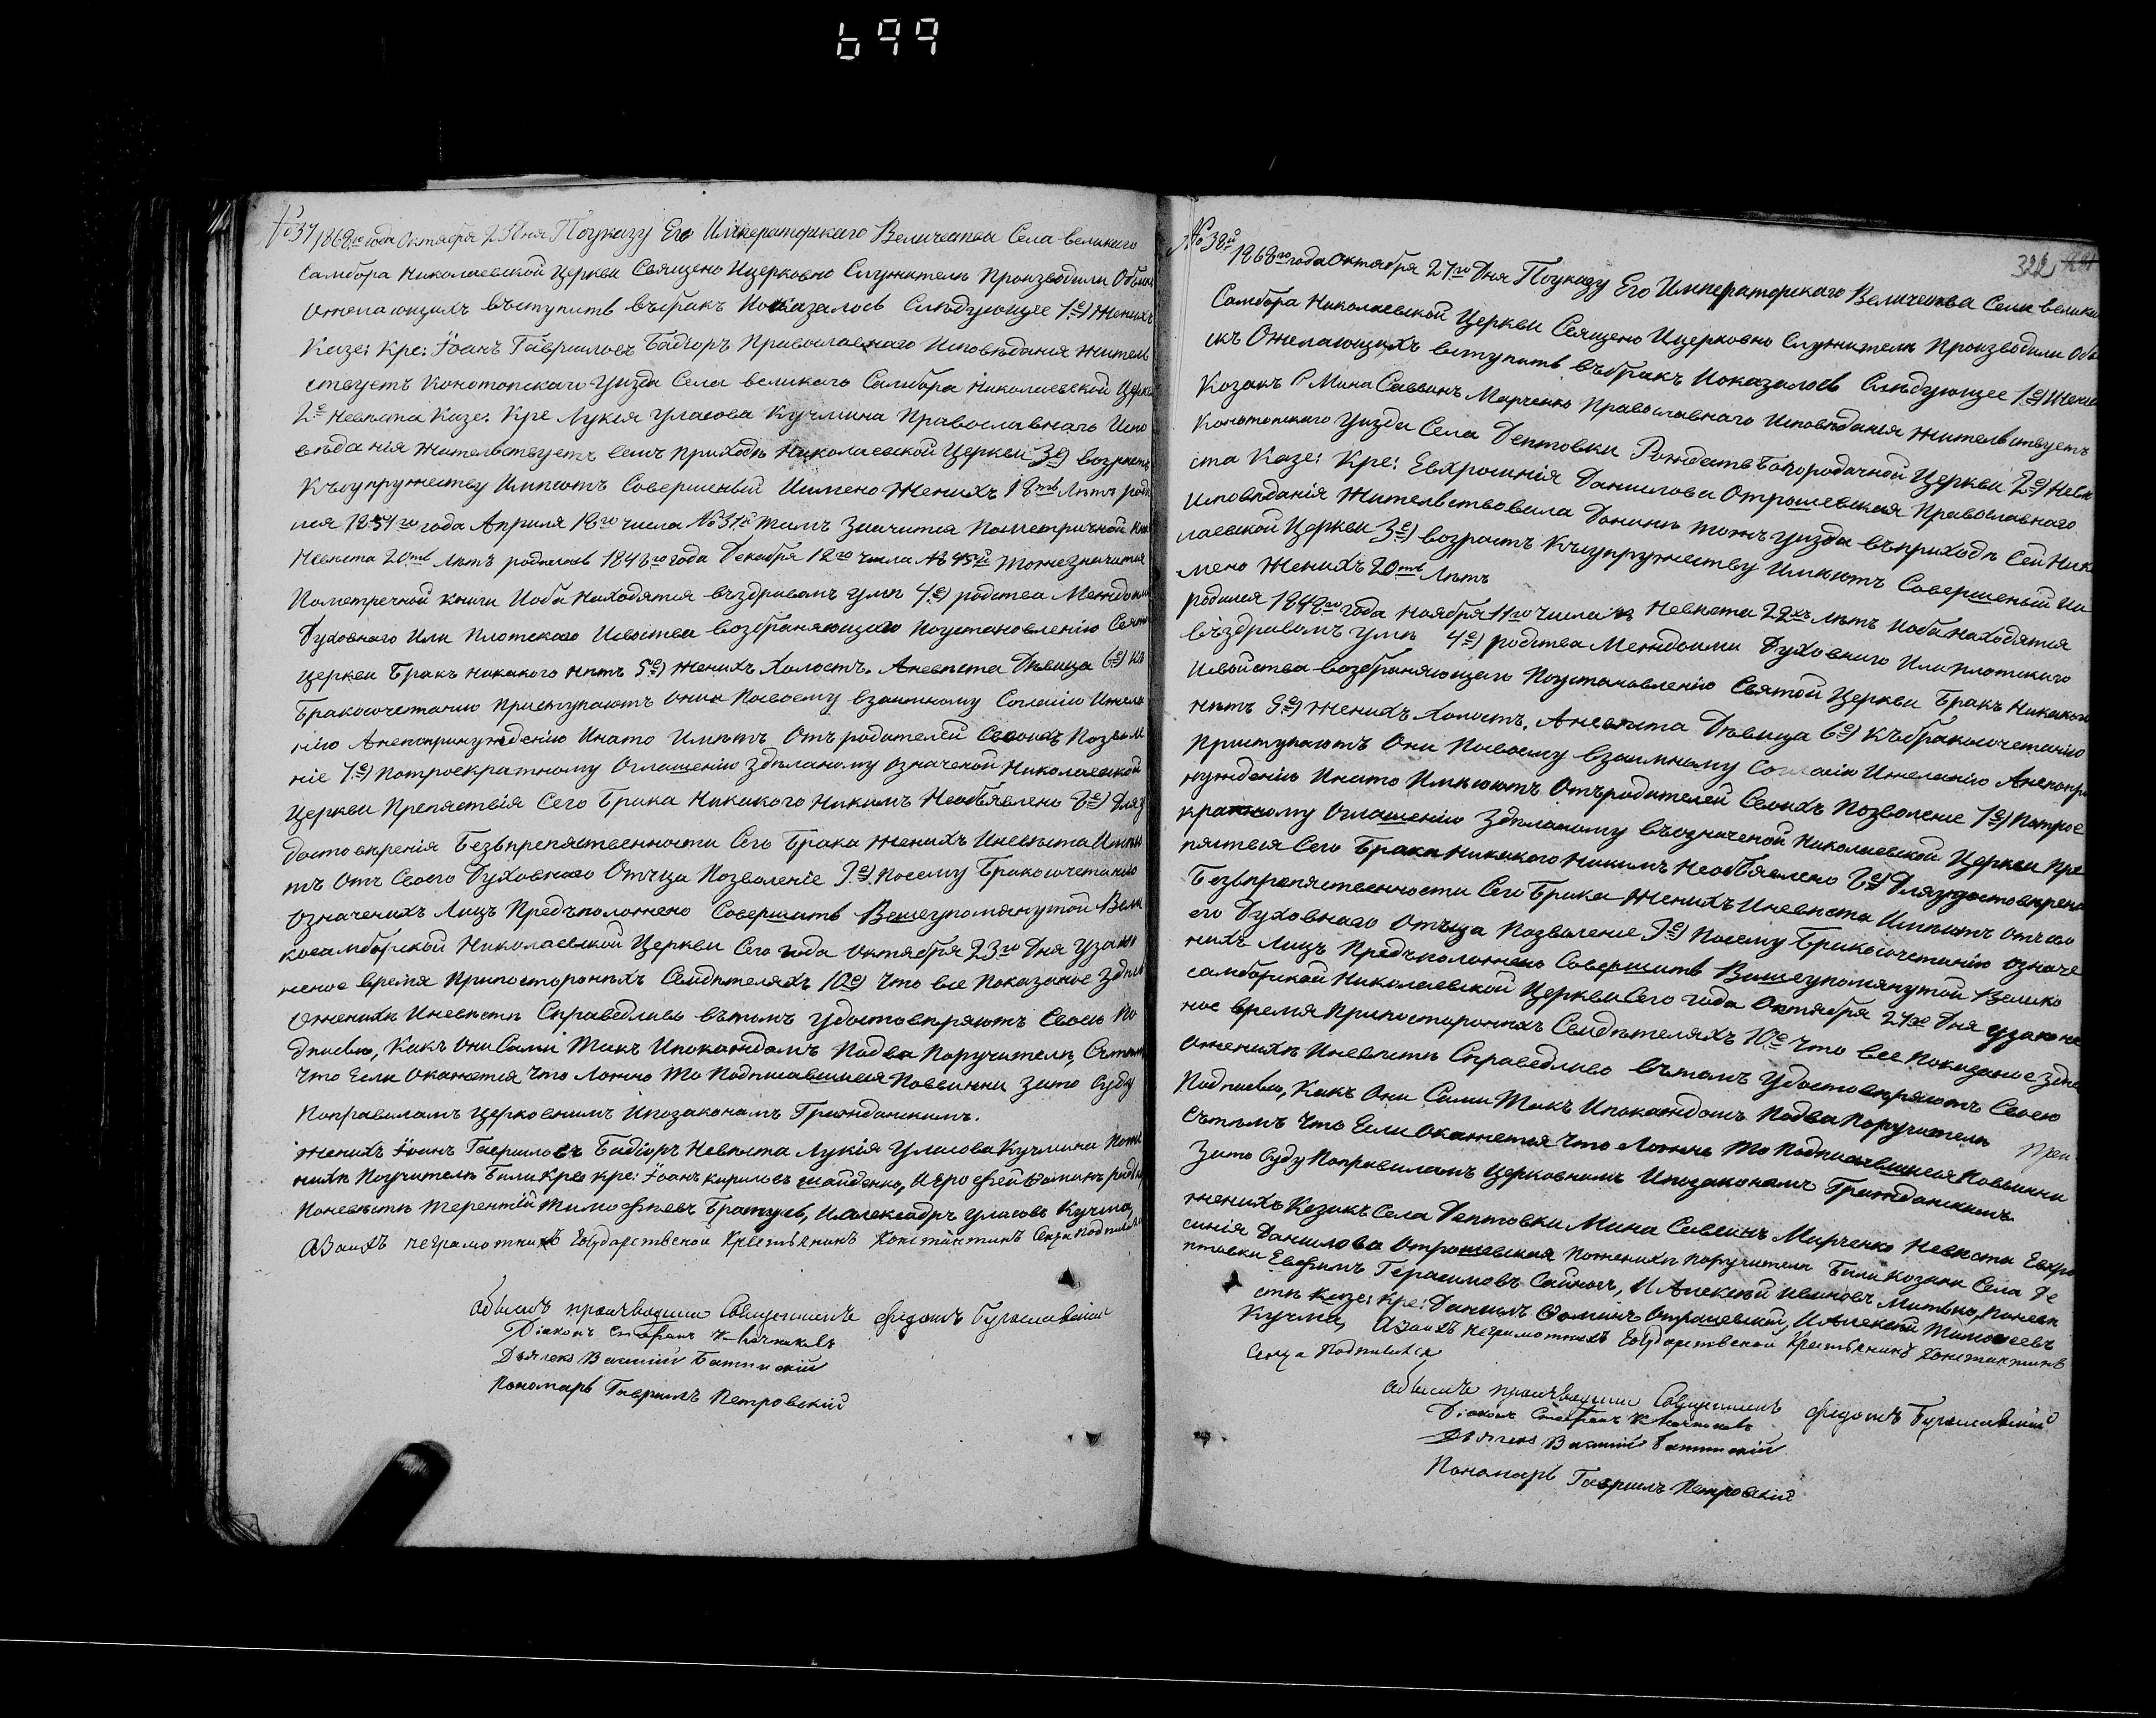 699
№ 37 1868го года Октября Дня Поуказу Его Императорскаго Величества Села великаго
Самбора Николаевской Церкви Священо Ицерковно Служители Производили Обыск
Ожелающихъ въступить въбракъ Ипоказалось Слѣдующее 1е) Женихъ
Казе: Кре: Іоанъ Гавриловъ Бадіоръ Православнаго Исповѣданія жители
ствуетъ Конотопскаго Уизда Села великаго Самбора Николаевской Церкв
2е Невѣста Казе: Кре Лукія Уласова Кучмина Православнаго Испо
вѣданія Жительствуетъ Приходѣ Николаевской Церкви 3е) возрастъ
Къ супружеству Имѣютъ Совершеный Иимено Женихъ 18ть Лѣтъ роди
лся года Апреля 18го числа № Значится Пометричной
Невѣста 20ть Лѣтъ родилась 1848го года Декабря 12го числа № Тоже Значится
Пометречной книги Иоба Находятся въздравомъ умѣ 4е) родства Между
Духовнаго Или Плотскаго Исвоства возбраняющаго Поустановленію Свято
Церкви Бракъ Никакого нѣтъ 5е) Женихъ Холостъ. Аневѣста Дѣвица 6е) Къ
Бракосочетанію Приступаютъ Они Посвоему Взаимному Согласію Ижела
нію Анепопринужденію Инато Имѣютъ Отъ родителей Своихъ Позволе
ніе 7е) Потроекратному Оглашенію Здѣланому Означеной Николаевской
Церкви Препяствія Сего Брака Никакого Никимъ Необявлено 8е) Для у
достовѣренія Безвпрепяственности Сего Брака Женихъ Иневѣста Имѣю
тъ Отъ Своего Духовнаго Отъца Позволеніе 9е) Посему Бракосочетанію
Означенихъ Лицъ Предъположено Совершить Вешеупомянутой Вели
косамборской Николаевской Церкви Сего года Октября 23го Дня Узако
неное время Припосторонихъ Свидѣтеляхъ 10е) Что все Показаное Здѣсь
Оженихѣ Иневѣстѣ Справедливо вътомъ Удостовѣряютъ Своею По
дписью, Какъ Они Сами Такъ Ипокаждомъ Подва Поручителя, Сътѣмъ
Что Если Окажется Что Ложно То Подписавшиеся Повинни Зато Суду
Поправиламъ Церковнимъ Ипозаконамъ Гражданскимъ.
Женихъ Іоанъ Гавриловъ Бадіоръ Невѣста Лукія Уласова Кучмина Поже
нихѣ Поручителя Били кре: Іоанъ Кириловъ Шайденко, Ерофей Фоминъ
Поневѣстѣ Терентій Тимофѣевъ Братусь, Иалександръ Уласовъ Кучма,
Азаихъ неграмотнихъ Государственой Крестьянинъ Константинъ Подписался
Обыскъ производили Священникъ Федотъ
Діаконъ Стефанъ
Василій
Пономарь Гавриилъ Петровскій
322
№ 38й
1868го года Октября 27го Дня Поуказу Его Императорскаго Величества Села велика
Самбора Николаевской Церкви Священо Ицерковно Служители Производили Обы
скъ Ожелающихъ вступить въбракъ Ипоказалось Слѣдующее 1е) Жених
Козакъ Мина Саввинъ Марченко Православнаго Исповѣданія Жительствуетъ
Конотопскаго Уизда Села Дептовки Рождествъ Богородичной Церкви 2е) Невѣ
ста Казе: Кре: Евхросинія Данилова Отрошевская Православнаго
Исповѣданія Жительствовала Донинѣ тогожъ уизда въприходѣ Сей Нико
лаевской Церкви 3е) возрастъ Къ супружеству Имѣютъ Совершеный Ии
мено Женихъ 20ть Лѣтъ
родился 1848го года Ноября 11го Числа Невѣста 22хъ Лѣтъ Иоба Находятся
въздравомъ умѣ 4е) родства Междоими Духовнаго Илиплотскаго
Исвойства возбраняющаго Поустановленію Святой Церкви Бракъ Никакого
нѣтъ 5е) Женихъ Холостъ, Аневѣста Дѣвица 6е) Къбракосочетанію
Приступаютъ Они Посвоему Взаимному Согласію Ижеланію Анепопри
нужденію Инато Имѣютъ Отъродителей Своихъ Позволеніе 7е) Потрое
кратному Оглашенію Здѣланому въозначеной Николаевской Церкви Пре
пяствія Сего Брака Никакого Никимъ Необявлено 8е) Дляудостовѣрена
Безвпрепяственности Сего Брака Женихъ Иневѣста Имѣютъ Отъ сво
его Духовнаго Отъца Позволеніе 9е) Посему Бракосочетанію Означе
нихъ Лицъ Предъположено Совершить Вешеупомянутой Велико
самборской Николаевской Церкви Сего года Октября 27го Дня Узаконе
ное время Припосторонихъ Свидѣтеляхъ 10е Что все Показаное Здѣсь
Оженихѣ Иневѣстѣ Справедливо вътомъ Удостовѣряютъ Своею
Подписью, Какъ Они Сами Такъ Ипокаждомъ Подва Поручителя
Сътѣмъ Что Если Окажется Что Ложно То Подписавшиеся Повинни
Зато Суду Поправиламъ Церковнимъ Ипозаконамъ Гражданскимъ.
Женихъ Козакъ Села Дептовки Мина Савинъ Марченко Невѣста Евхро
синія Данилова Отрошевская Поженихѣ Поручители Били Козаки Села Де
птовки Евфимъ Герасимовъ И Алексѣй Ивановъ Поневѣ
стѣ Казе: Кре: Данилъ Фоминъ Отрошевскій, И Алексѣй Тимофеевъ
Кучма, Азаихъ Неграмотнихъ Государственой Крестьянинъ Константинъ
Подписался
Обыскъ производили Священникъ Федотъ
Діаконъ Стефанъ
Василій
Пономарь Гавриилъ Петровскій